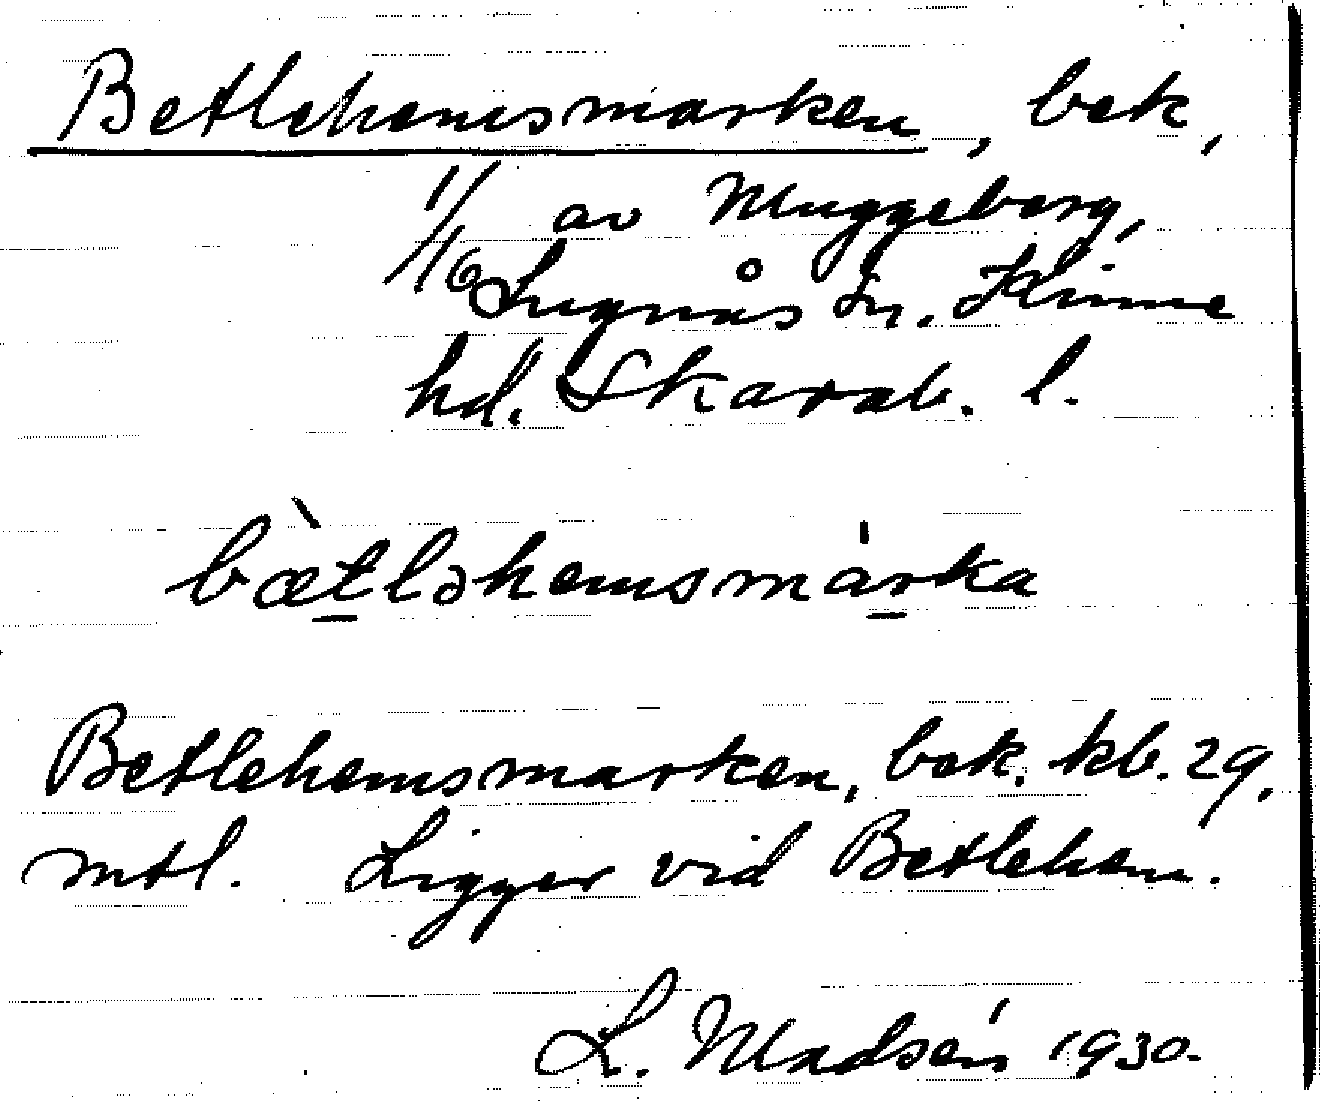 Betlehemsmarken, bek,
1/16 av Muggeberg,
Lugnås sn. Kinne
hd. Skarab. l.
bæ̀tləhemsmárka
Betlehemsmarken, bek. kb. 29,
mtl. Ligger vid Betlehem.
L. Madsén 1930.